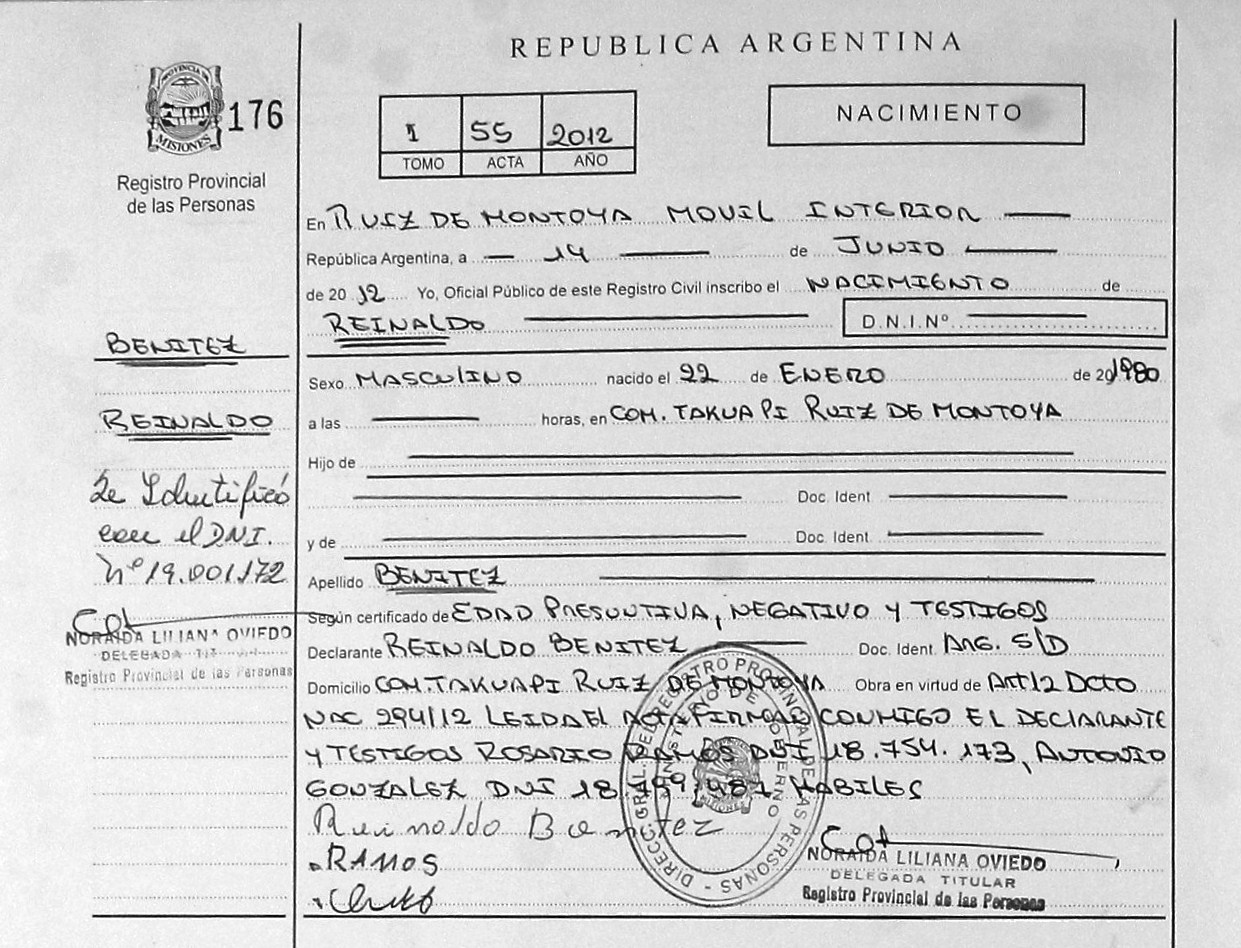 REPUBLICA ARGENTINA
PROVINCIA DE
MISIONES
176
Registro Provincial
de las Personas
I 55 2012
TOMO ACTA AÑO
NACIMIENTO
En RUIZ DE MONTOYA MOVIL INTERIOR
República Argentina, a 14 de JUNIO
de 2012 Yo, Oficial Público de este Registro Civil inscribo el NACIMIENTO de
REINALDO D.N.I.Nº
BENITEZ
REINALDO
Se Identificó
con el DNI.
Nº 19.001.172
NORAIDA LILIANA OVIEDO
DELEGADA
Registro Provincial de las Personas
Sexo MASCULINO nacido el 22 de ENERO de 20 1980
a las horas, en COM. TAKUAPI RUIZ DE MONTOYA
Hijo de
Doc. Ident
y de Doc. Ident.
Apellido BENITEZ
Según certificado de EDAD PRESUNTIVA, NEGATIVO Y TESTIGOS
Declarante REINALDO BENITEZ Doc. Ident. ARG. S/D
Domicilio COM. TAKUAPI RUIZ DE MONTOYA Obra en virtud de ART 12 DCTO
NAC 294/12 LEIDA EL ACTA FIRMAN CONMIGO EL DECLARANTE
Y TESTIGOS ROSARIO RAMOS DNI 18.754.173, ANTONIO
GONZALEZ DNI HABILES
Reinaldo Benitez
RAMOS
DIRECC. GRAL. DEL REGISTRO PROVINCIAL DE LAS PERSONAS
MINISTERIO DE GOBIERNO
MISIONES
NORAIDA LILIANA OVIEDO
DELEGADA TITULAR
Registro Provincial de las Personas